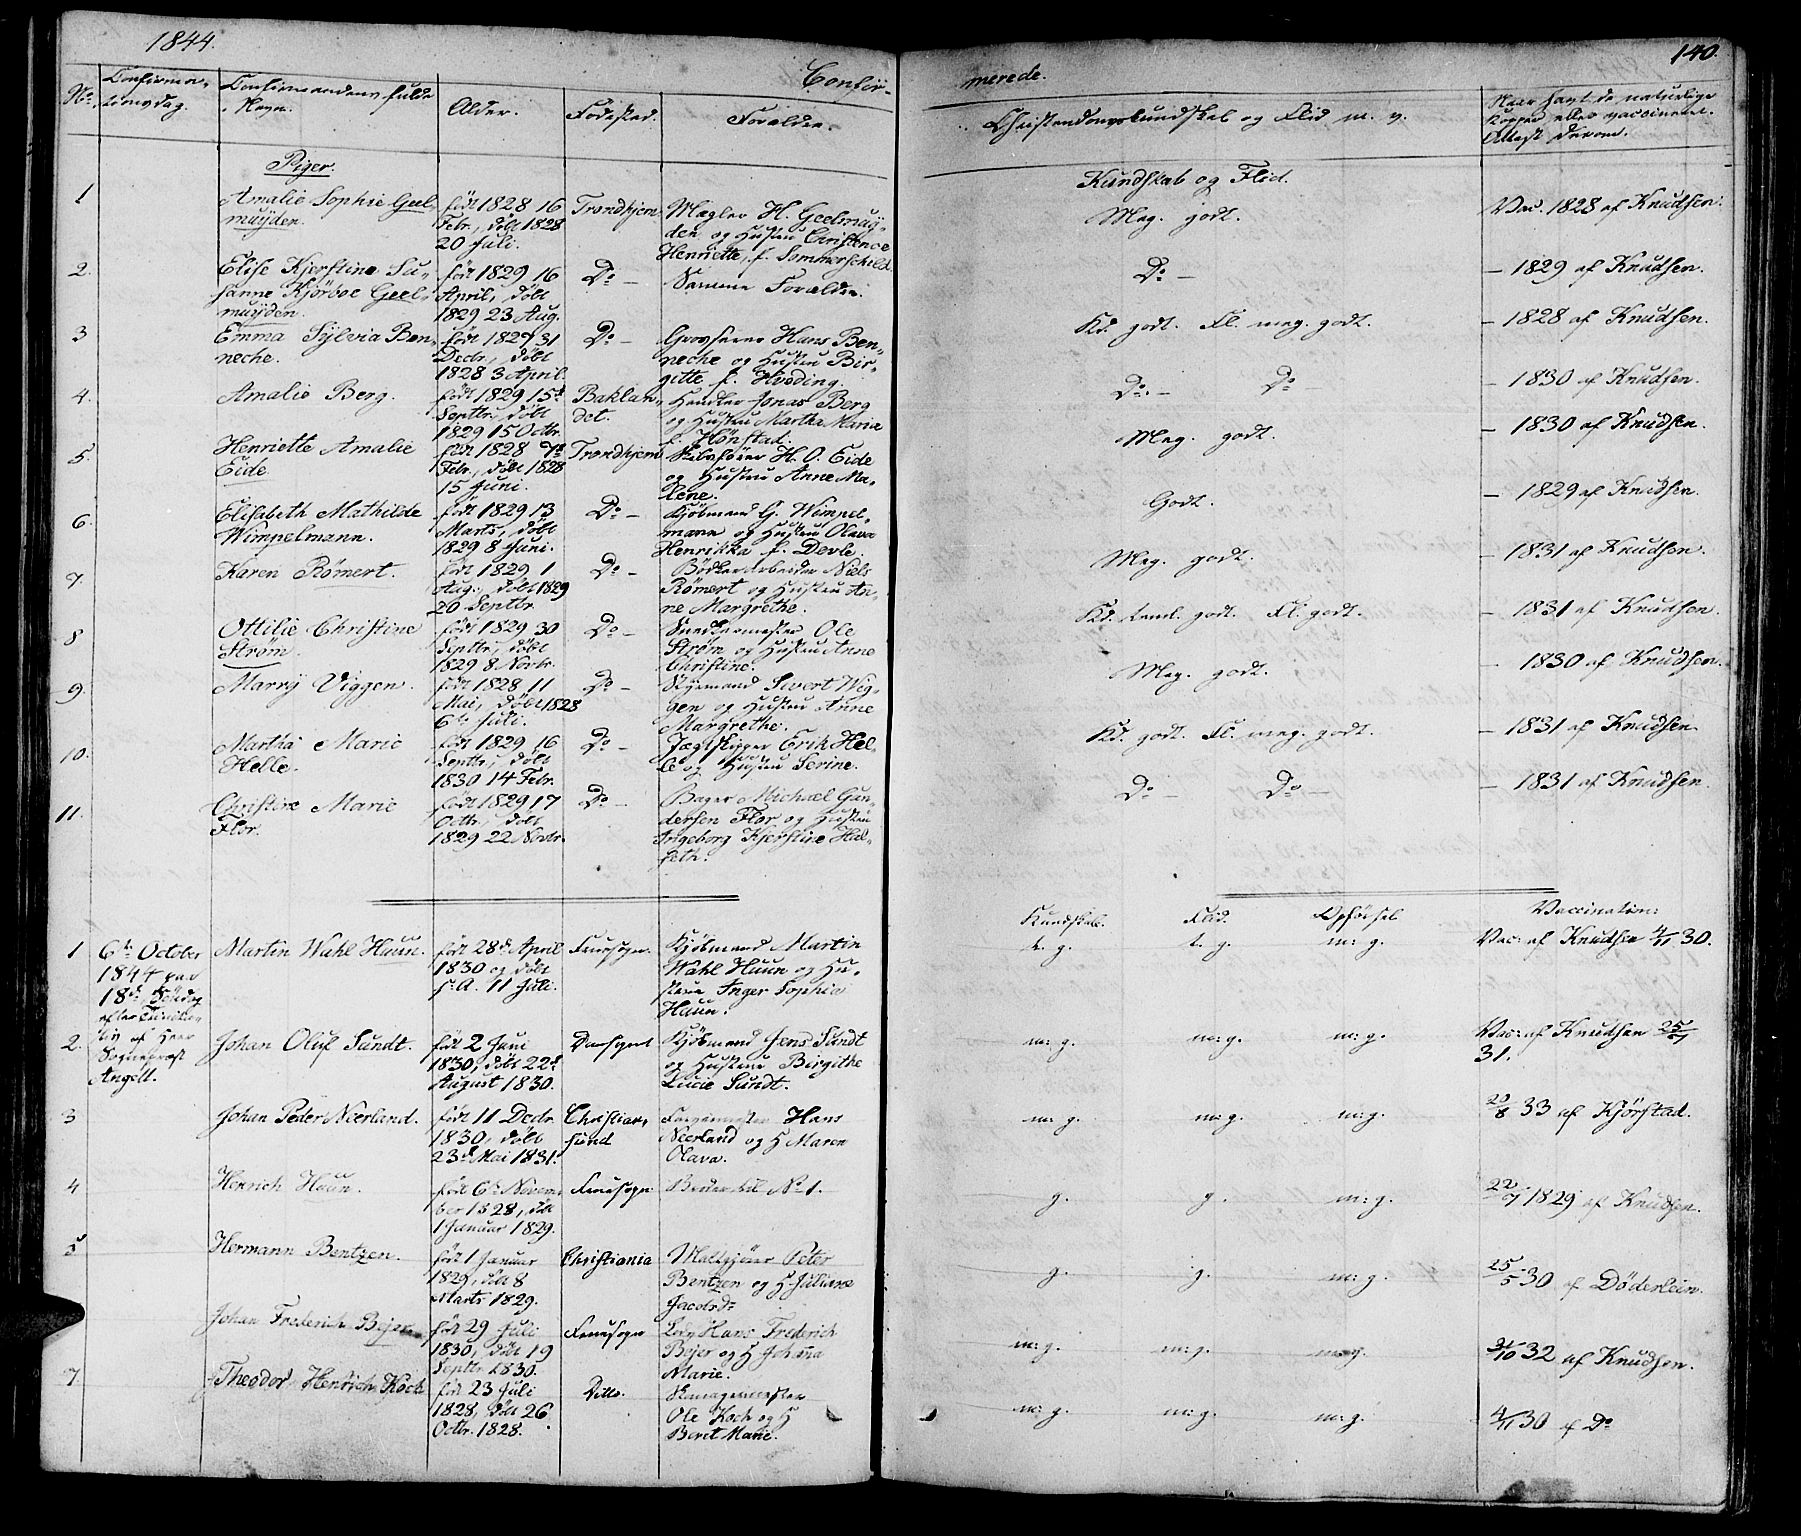 1844.
140.
Confir-
merede.
No.
Confirma-
tionsdag.
Confirmandens fulde
Navn.
Alder.
Födested.
Forældre.
Christendomskundskab og Flid m. v.
Naar havt de naturlige
Kopper eller vaccineret.
Attest derom.
Piger.
Kundskab og Flid.
1
Amalie Sophie Geel-
muyden.
født 1828 16
Febr., døbt 1828
20 Juli.
Trondhjem
Mægler H. Geelmuy-
den og Hustru Christence
Henriette, f. Sommerschild.
Meg. godt.
Vac. 1828 af Knudsen.
2.
Elise Kjerstine Su-
sanne Kjörboe Geel-
muyden.
født 1829 16
April, døbt
1829 23 Aug.
Do —
Samme Forældre.
Do —
— 1829 af Knudsen.
3
Emma Sylvia Ben-
neche.
født 1827 31
Decbr., døbt
1828 3 April.
Do —
Grosserer Hans Ben-
neche og Hustru Bir-
gitte f. Hveding.
Kd. godt. Fl. meg. godt.
— 1828 af Knudsen.
4.
Amalie Berg.
født 1829 15de
Septbr., døbt
1829 15 Octbr.
Baklan-
det.
Handler Jonas Berg
og Hustru Martha Maria
f. Hönstad.
Do — Do —
— 1830 af Knudsen.
5.
Henriette Amalie
Eide.
født 1828 7de
Febr., døbt 1828
15 Juni.
Trondhjem
Skibsfører H. O. Eide
og Hustru Anne Ma-
lene.
Meg. godt.
— 1830 af Knudsen.
6.
Elisabeth Mathilde
Wimpelmann.
født 1829 13
Marts, døbt
1829 8 Juni.
Do —
Kjöbmand G. Wimpel-
mann og Hustru Olava
Henrikka f. Devle.
Godt.
— 1829 af Knudsen.
7.
Karen Römert.
født 1829 1
Aug., døbt 1829
20 Septbr.
Do —
Bödkerarbeider Niels
Römert og Hustru An-
ne Margrethe.
Meg. godt.
— 1831 af Knudsen.
8
Ottilie Christine
Ström.
født 1829 30
Septbr., døbt
1829 8 Novbr.
Do —
Snedkermester Ole
Ström og Hustru Anne
Christine.
Kd. teml. godt. Fl. godt.
— 1831 af Knudsen.
9.
Marry Viggen.
født 1828 11
Mai, døbt 1828
6te Juli.
Do —
Styrmand Sivert Wig-
gen og Hustru Anne
Margrethe.
Meg. godt.
— 1830 af Knudsen.
10.
Martha Marie
Helle.
født 1829 16
Septbr., døbt
1830 14 Febr.
Do —
Jægtskipper Erik Hel-
le og Hustru Serine.
Kd. godt. Fl. meg. godt.
— 1831 af Knudsen
11.
Christine Marie
Flor.
født 1829 17
Octbr., døbt
1829 22 Novbr.
Do —
Bager Michael Gun-
dersen Flor og Hustru
Ingeborg Kjerstine Hal-
seth.
Do — Do —
— 1831 af Knudsen.
Kundskab. Flid. Opförsel Vaccination:
1
6te October
1844 paa
18de Söndag
efter Trinita-
tis af Herr
Sogneprest
Angell.
Martin Wahl Huun.
født 28de April
1830 og døbt
s. A. 11 Juli.
Fruesogn.
Kjöbmand Martin
Wahl Huun og Hu-
strue Anger Sophia
Huun.
t. g. t. g. m: g.
Vac: af Knudsen 4/11 30.
2.
Johan Oluf Sundt.
født 2 Juni
1830, døbt 22de
August 1830.
Domsognet
Kjöbmand Jens Sundt
og Hustrue Birgithe
Lucie Sundt.
m: g. m: g. m: g.
Vac: af Knudsen 25/7
31.
3
Johan Peder Neerland.
født 11 Decbr.
1830, døbt
23de Mai 1831.
Christian-
sund
Hans
Neerland og H Maren
Olava.
m: g. m: g. m: g.
20/8 33 af Kjörstad.
4
Henrich Huun.
født 6te Novem-
ber 1828, døbt
1 Januar 1829.
Fruesogn
Broder til No 1.
g. g. m: g.
22/7 1829 af Knudsen.
5
Hermann Bentzen.
født 1 Januar
1829, døbt 8
Marts 1829.
Christiania
Maltgjører Peter
Bentzen og H Juliane
Jacobsdr
g. g. m: g.
25/5 30 af Döderlein.
Johan Frederich Bejer
født 29 Juli
1830, døbt 19
Septbr. 1830.
Fruesogn
Lods Hans Frederich
Bejer og H Johanna
Marie.
m: g. m: g. m: g.
31/10 32 af Knudsen.
7
Theodor Henrich Koch
født 23 Juli
1828, døbt 26
Octbr. 1828.
Ditto.
Skomagermester
Ole Koch og H
Berit Marie.
m: g. m: g. m: g.
4/11 30 af Do